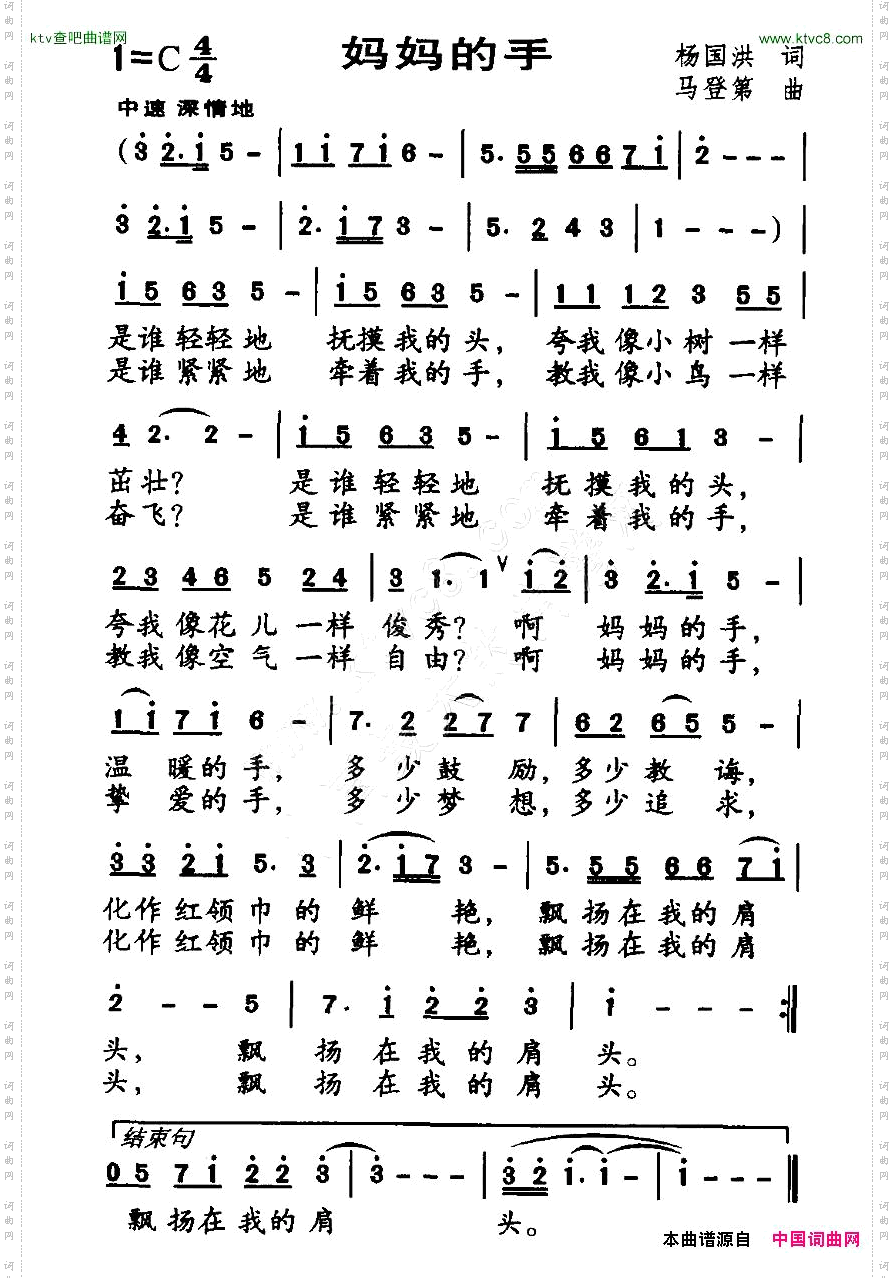 ktv查吧曲谱网
www.ktvc8.com
1=C 4/4
妈妈的手
杨国洪 词
马登第 曲
中速 深情地
(3 2. 1 5 - | 1 1 7 1 6 - | 5. 5 5 6 6 7 1 | 2 - - - |
3 2. 1 5 - | 2. 1 7 3 - | 5. 2 4 3 | 1 - - - ) |
1 5 6 3 5 - | 1 5 6 3 5 - | 1 1 1 2 3 5 5 |
是谁轻轻地 抚摸我的头, 夸我像小树一样
是谁紧紧地 牵着我的手, 教我像小鸟一样
4 2. 2 - | 1 5 6 3 5 - | 1 5 6 1 3 - |
茁壮? 是谁轻轻地 抚摸我的头,
奋飞? 是谁紧紧地 牵着我的手,
2 3 4 6 5 2 4 | 3 1. 1 V 1 2 | 3 2. 1 5 - |
夸我像花儿一样 俊秀? 啊 妈妈的手,
教我像空气一样 自由? 啊 妈妈的手,
1 1 7 1 6 - | 7. 2 2 7 7 | 6 2 6 5 5 - |
温暖的手, 多少鼓励,多少教诲,
挚爱的手, 多少梦想,多少追求,
3 3 2 1 5. 3 | 2. 1 7 3 - | 5. 5 5 6 6 7 1 |
化作红领巾的鲜艳, 飘扬在我的肩
化作红领巾的鲜艳, 飘扬在我的肩
2 - - 5 | 7. 1 2 2 3 | 1 - - - :‖
头, 飘扬在我的肩头。
头, 飘扬在我的肩头。
结束句
0 5 7 1 2 2 3 | 3 - - - | 3 2 1. 1 - | 1 - - - ‖
飘扬在我的肩 头。
本曲谱源自 中国词曲网